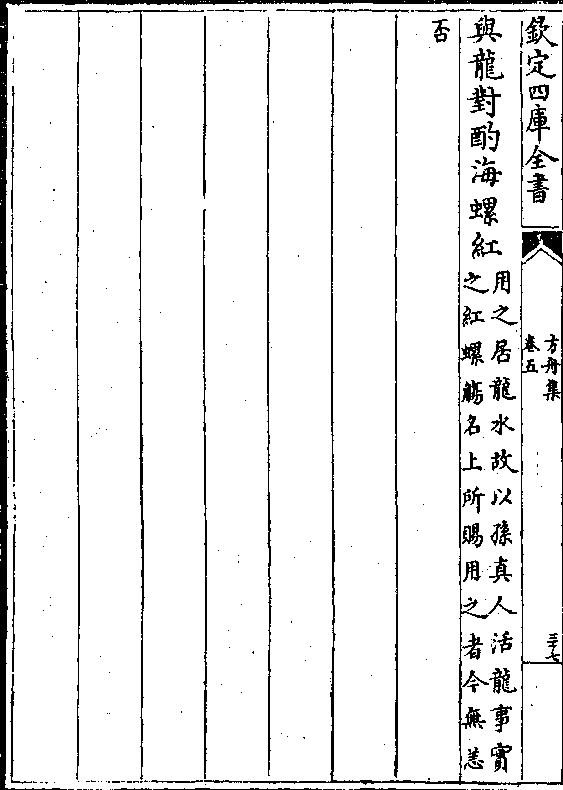 欽定四庫全書
方舟集
卷五
三十七
與龍對酌海螺紅
用之居龍水故以孫真人活龍事實
之紅螺觴名上所賜用之者今無恙
否